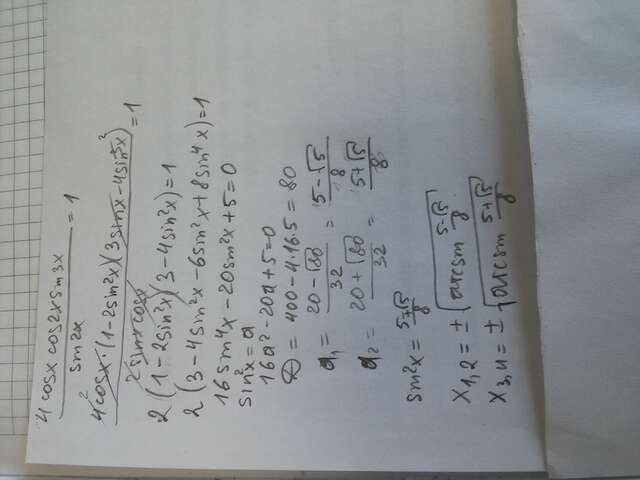 4cosx cos2x sin3x / sin2x = 1
4cosx · (1-2sin²x)(3sinx-4sin³x) / 2sinxcosx = 1
2(1-2sin²x)(3-4sin²x)=1
2(3-4sin²x-6sin²x+8sin⁴x)=1
16sin⁴x-20sin²x+5=0
sin²x=a
16a²-20a+5=0
D = 400-4·16·5 = 80
a₁ = (20-√80)/32 = (5-√5)/8
a₂ = (20+√80)/32 = (5+√5)/8
sin²x = (5∓√5)/8
x₁,₂ = ±√(arcsin (5-√5)/8)
x₃,₄ = ±√(arcsin (5+√5)/8)